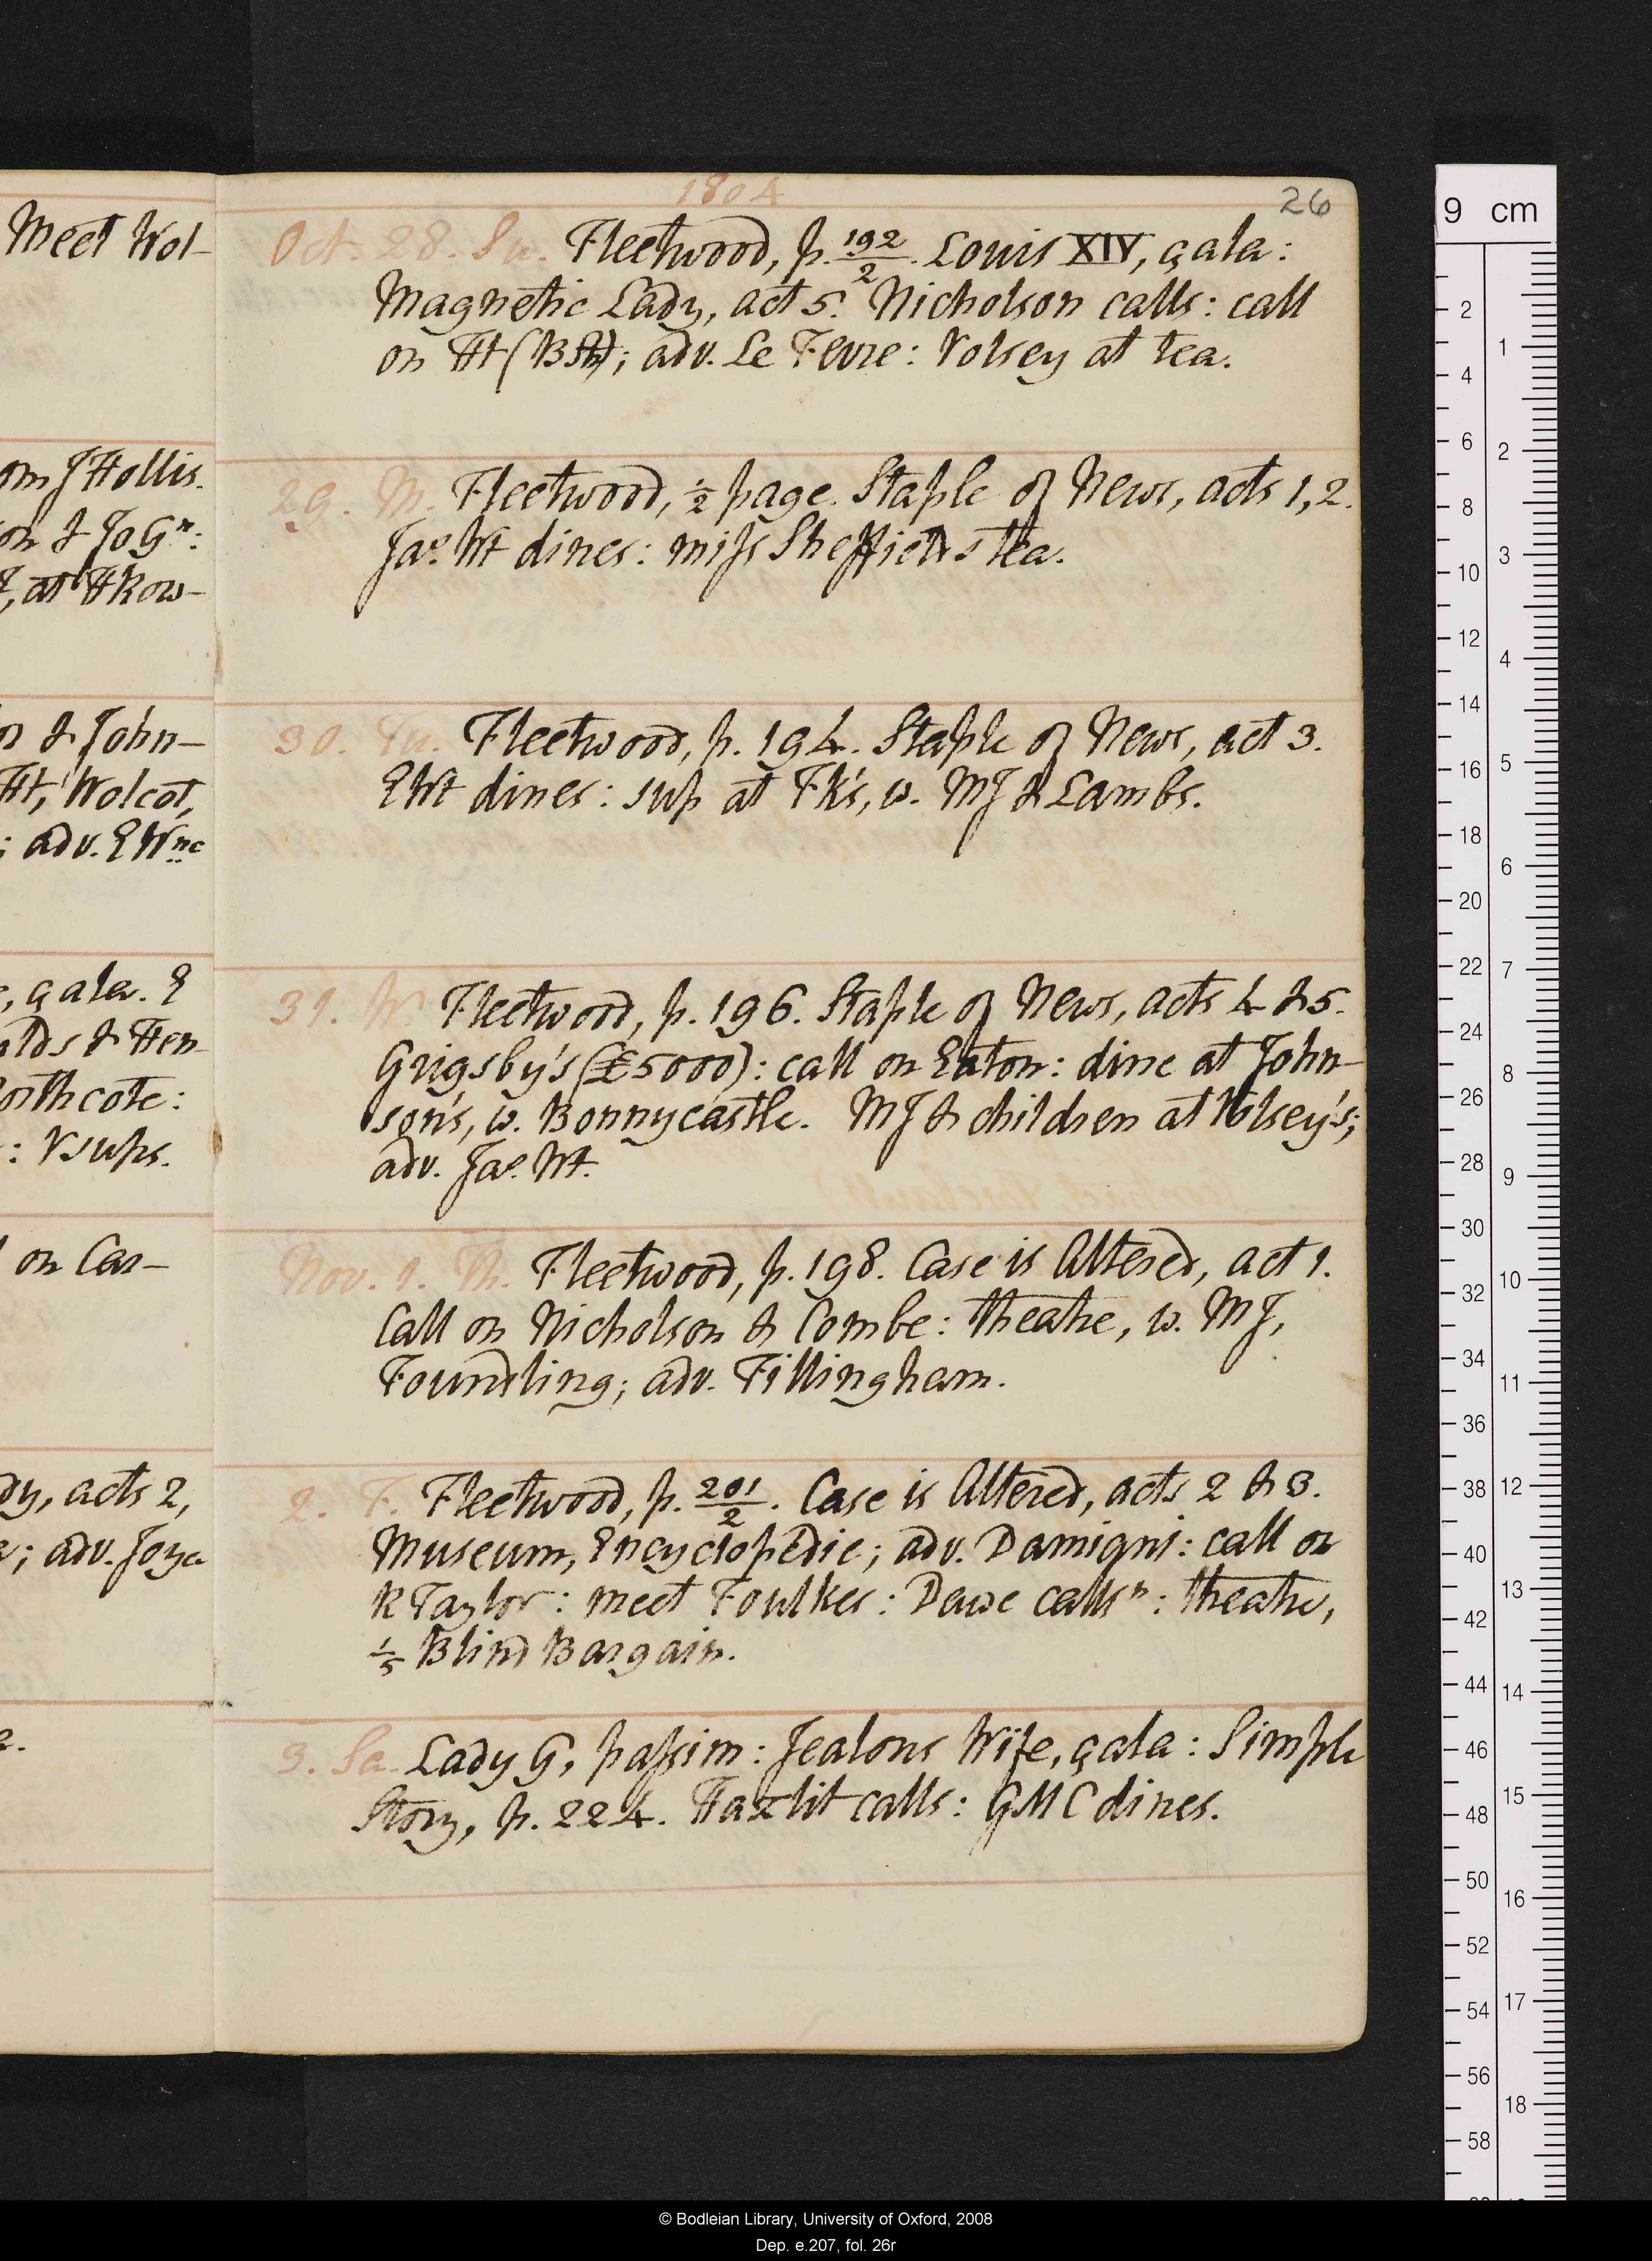 1804
26
Meet Wol-
om J Hollis.
on & Jo Gn:
, at HRow-
n & John-
Ht, Wolcot,
; adv. EWne
, gala. E
lds & Hen-
orthcote:
: V sups.
on Car-
dy, acts 2,
; adv. Joyce
Oct. 28. Su. Fleetwood, p. 192/2. Louis XIV, gala:
Magnetic Lady, act 5. Nicholson calls: call
on Ht (BSh); adv. Le Fevre: Volsey at tea.
29. M. Fleetwood, 1/2 page. Staple of News, acts 1, 2.
Jas Wt dines: miss Sheffields tea.
30. Tu. Fleetwood, p. 194. Staple of News, act 3.
EWt dines: sup at Fk's, w. MJ & Lambs.
31. W. Fleetwood, p. 196. Staple of News, acts 4 & 5.
Grigsby's (£5000): call on Eaton: dine at John-
son's, w. Bonnycastle. MJ & children at Volsey's;
adv. Jas. Wt.
Nov. 1. Th. Fleetwood, p. 198. Case is Altered, act 1.
Call on Nicholson & Combe: theatre, w. MJ,
Foundling; adv. Fillingham.
2. F. Fleetwood, p. 201/2. Case is Altered, acts 2 & 3.
Museum, Encyclopedie; adv. Damigni: call on
R Taylor: meet Foulkes: Dawe calls n: theatre,
1/5 Blind Bargain.
3. Sa. Lady G, passim: Jealous Wife, gala: Simple
Story, p. 224. Hazlit calls: GMC dines.
9 cm
2
4
6
8
10
12
14
16
18
20
22
24
26
28
30
32
34
36
38
40
42
44
46
48
50
52
54
56
58
1
2
3
4
5
6
7
8
9
10
11
12
13
14
15
16
17
18
© Bodleian Library, University of Oxford, 2008
Dep. e.207, fol. 26r